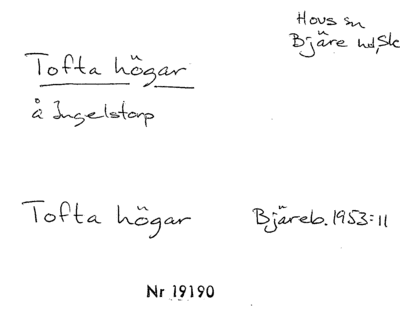 Hovs sn
Bjäre hd, Sk
Tofta högar
å Ingelstorp
Tofta högar Bjäreb. 1953:11
Nr 19190